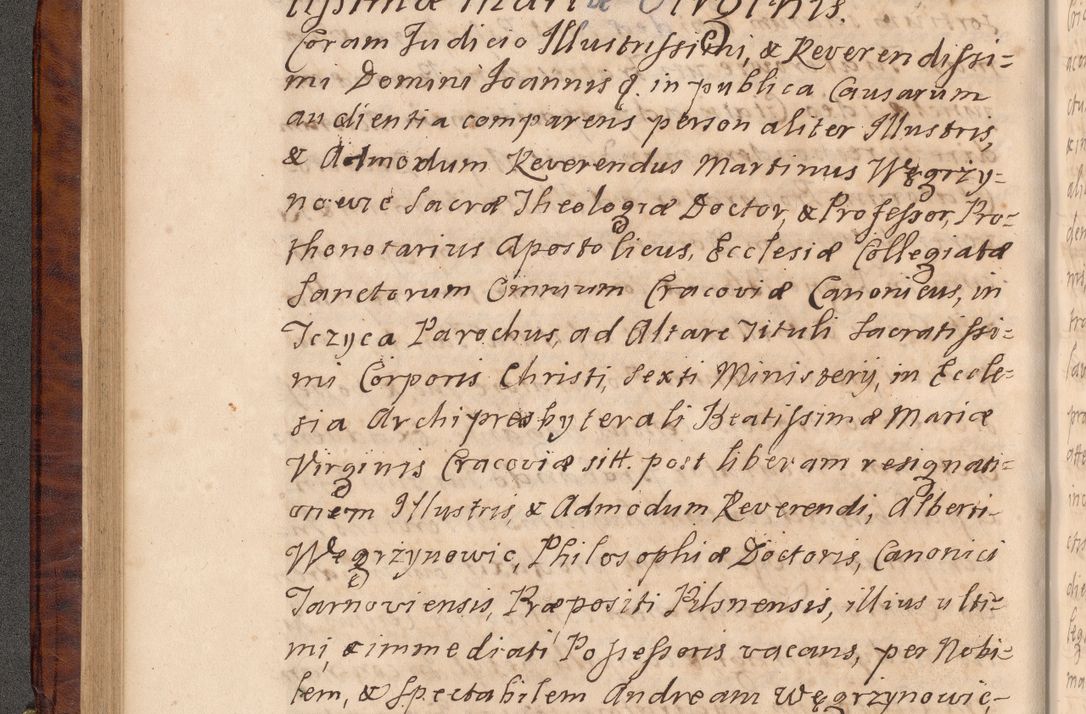 tissimæ Mariæ Virginis.
Coram Judicio Illustrissimi, & Reverendissi=
mi Domini Joannis q. in publica Causarum
audientia comparens personaliter Illustris,
& Admodum Reverendus Martinus Węgrzy=
nowic Sacræ Theologiæ Doctor, & Professor, Pro=
thonotarius Apostolicus, Ecclesiæ Collegiatæ
Sanctorum Omnium Cracoviæ Canonicus, in
Tczyca Parochus, ad Altare Tituli Sacratissi=
mi Corporis Christi, Sexti Ministerij, in Eccle=
sia Archipresbyterali Beatissimæ Mariæ
Virginis Cracoviæ sitt. post liberam resignati=
onem Illustris, & Admodum Reverendi, Alberti
Węgrzynowic, Philosophiæ Doctoris, Canonici
Tarnoviensis, Præpositi Pilsnensis, illius ulti=
mi, & immediati Possessoris vacans, per Nobi=
lem, & Spectabilem Andream Węgrzynowic,